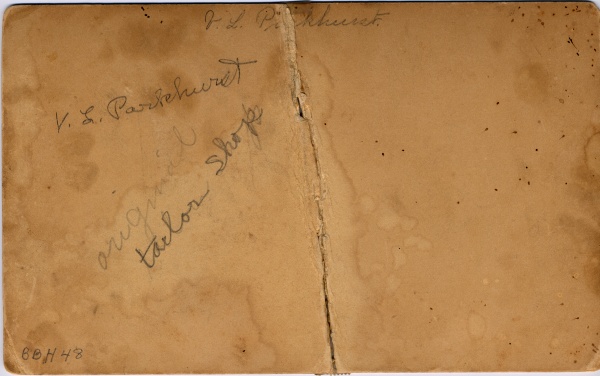 V. L. Parkhurst.
V. L. Parkhurst
original
tailor shop
BBH48